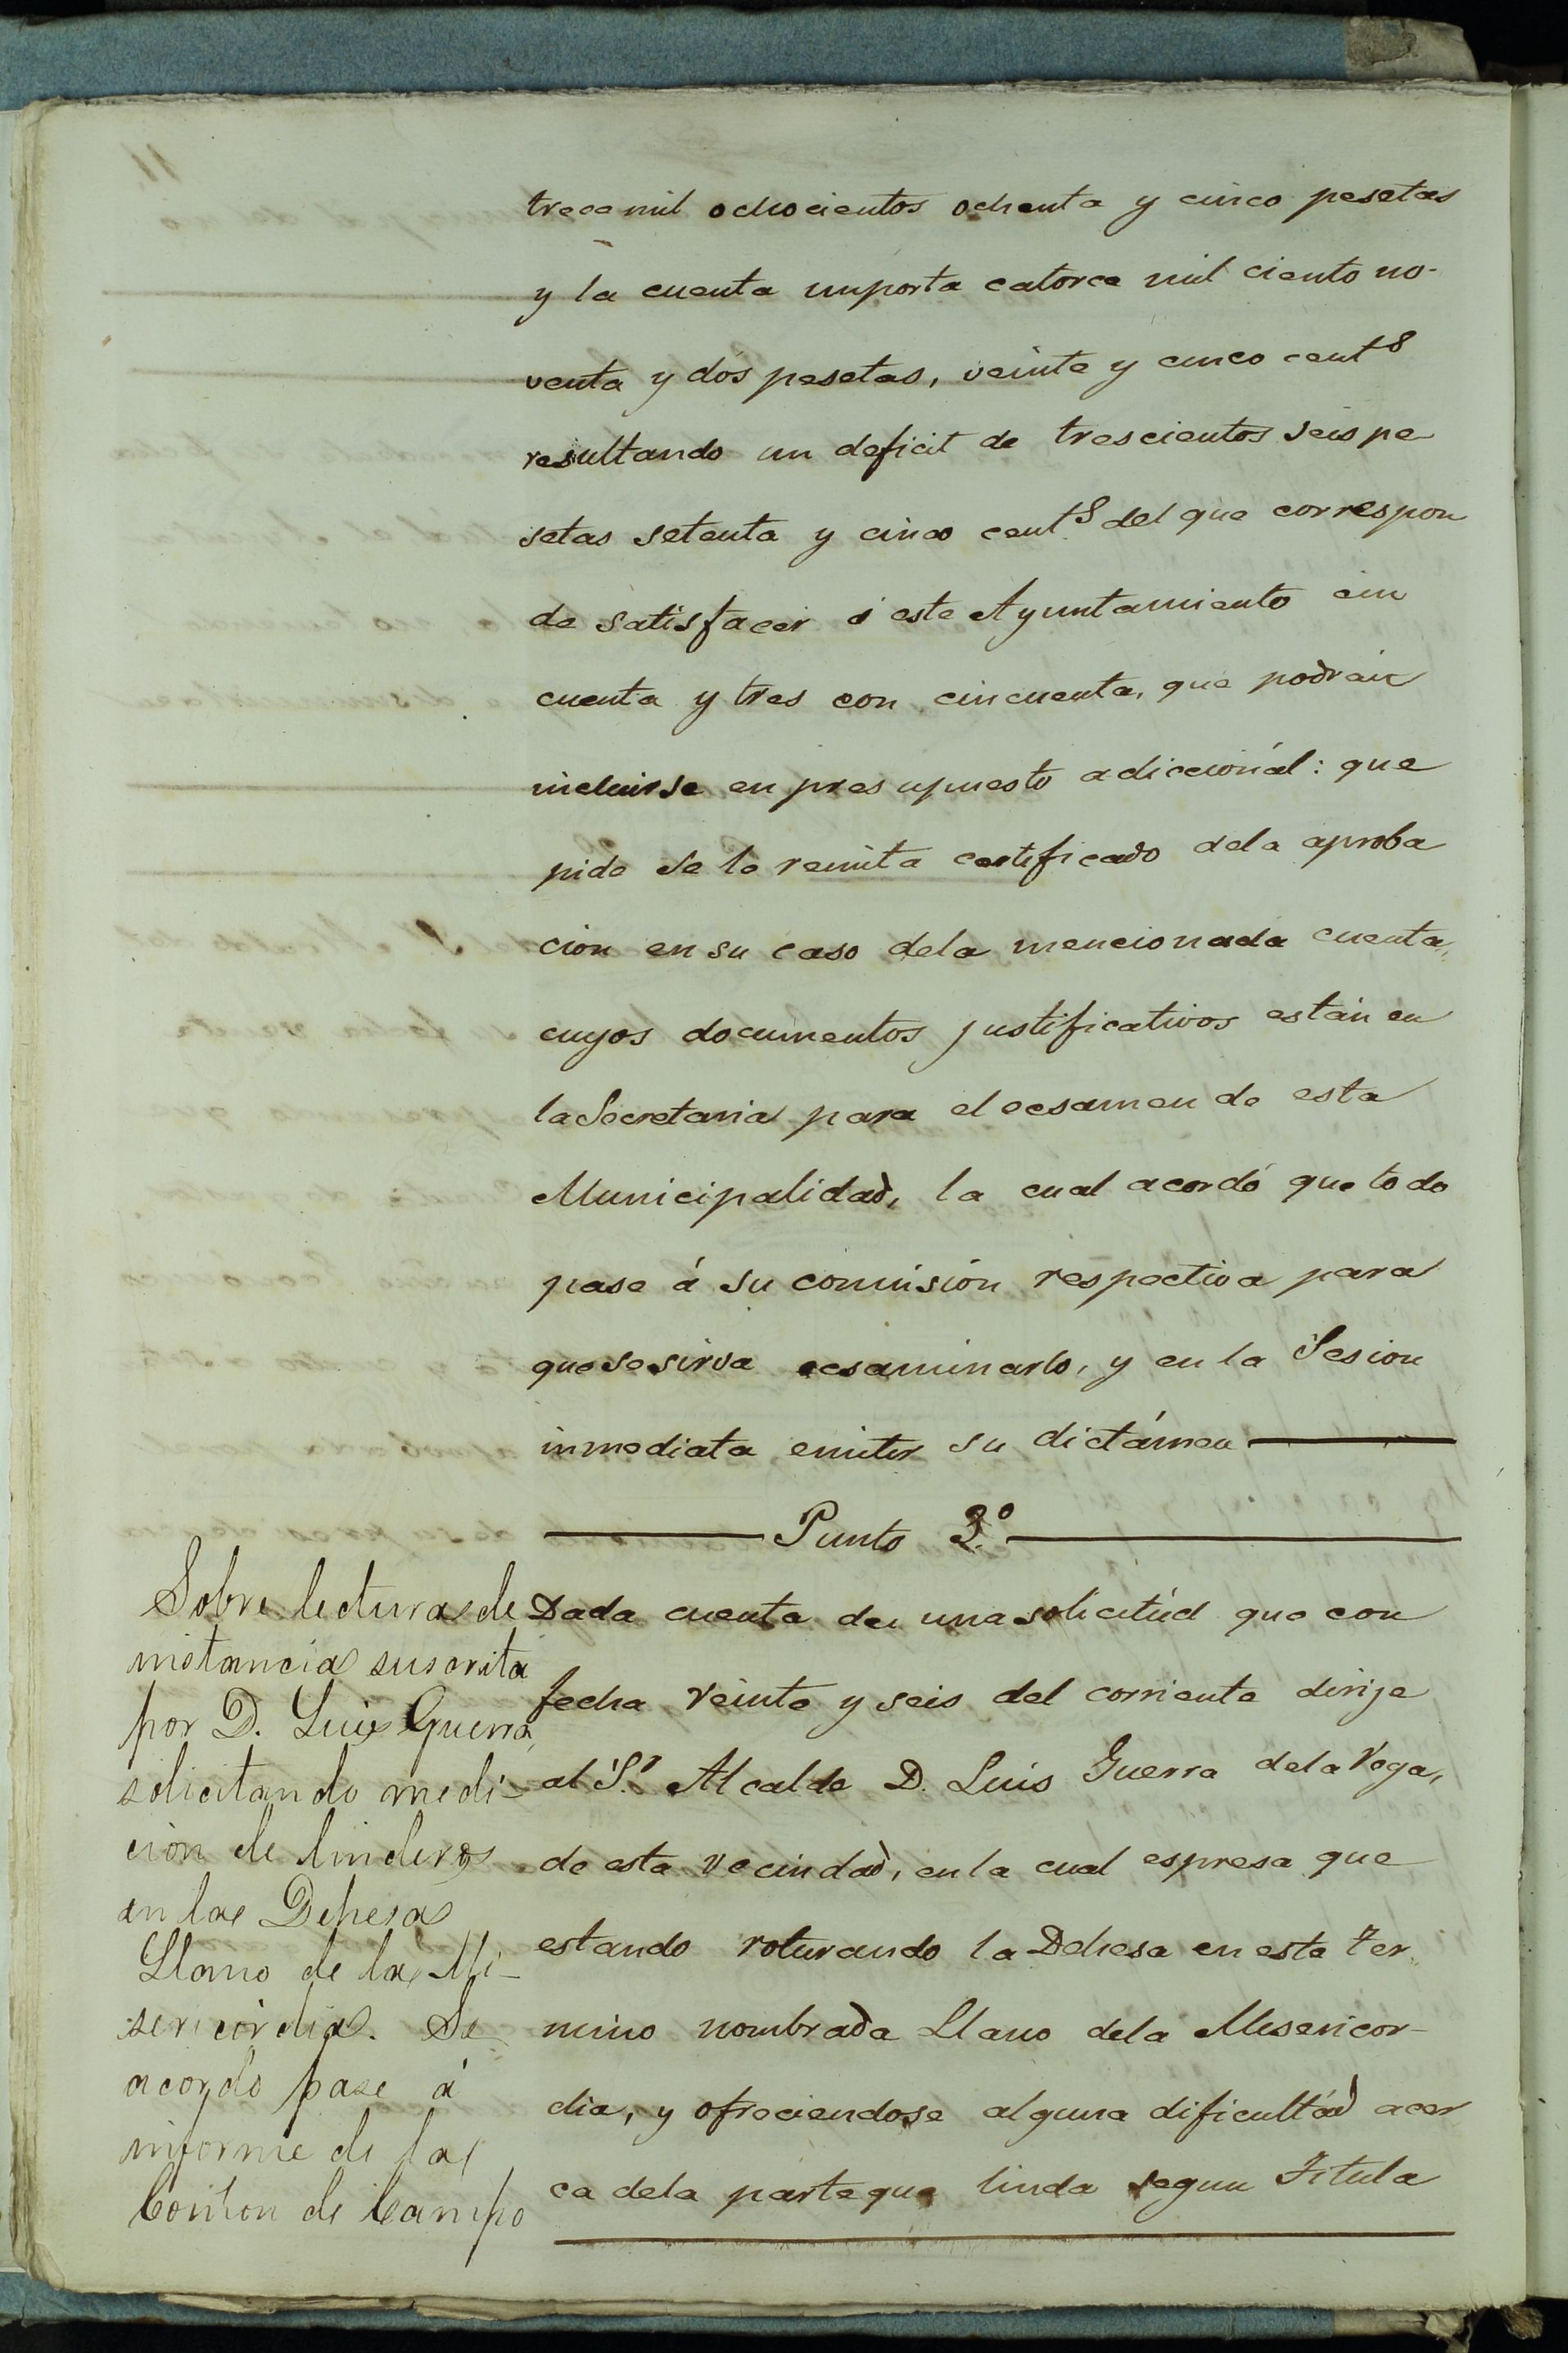 trece mil ochocientos ochenta y cinco pesetas
y la cuenta importa catorce mil ciento no-
venta y dós pesetas, veinte y cinco cent.s
resultando un deficit de trescientos seis pe
setas setenta y cinco cent.s del que correspon
de satisfacer á este Ayuntamiento cin
cuenta y tres con cincuenta, que podrán
incluirse en presupuesto adiccionál: que
pide se le remita certificado dela aproba
ción en su caso dela mencionada cuenta,
cuyos documentos justificativos están en
la Secretaria para el ecsamen de esta
Municipalidad, la cual acordó que todo
pase á su comisión respectiva para
que se sirva ecsaminarlo, y en la Sesion
inmediata emitir su dictámen
Punto 2.º
Dada cuenta de una solicitúd que con
fecha veinte y seis del corriente dirije
al S.r Alcalde D. Luis Guerra dela Vega,
de esta vecindad, en la cual espresa que
estando roturando la Dehesa en este Ter-
mino nombrada Llano dela Misericor-
dia, y ofreciendose alguna dificultád acer
ca dela parte que linda segun Titula
Sobre lecturas de
instancia suscrita
por D. Luis Guerra,
solicitando medi-
cion de linderos
en las Dehesas
Llano de la Mi-
sericordia. Se
acordó pase á
informe de la
Comi.on de Campo